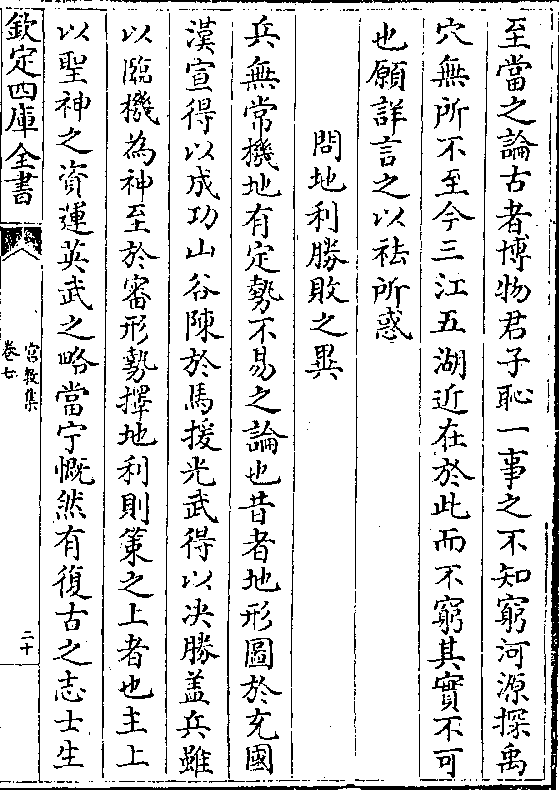 至當之論古者博物君子恥一事之不知窮河源探禹
穴無所不至今三江五湖近在於此而不窮其實不可
也願詳言之以祛所惑
問地利勝敗之異
兵無常機地有定勢不易之論也昔者地形圖於充國
漢宣得以成功山谷陳於馬援光武得以決勝蓋兵雖
以臨機為神至於審形勢擇地利則策之上者也主上
以聖神之資運英武之略當宁慨然有復古之志士生
欽定四庫全書
宮教集
卷七
二十